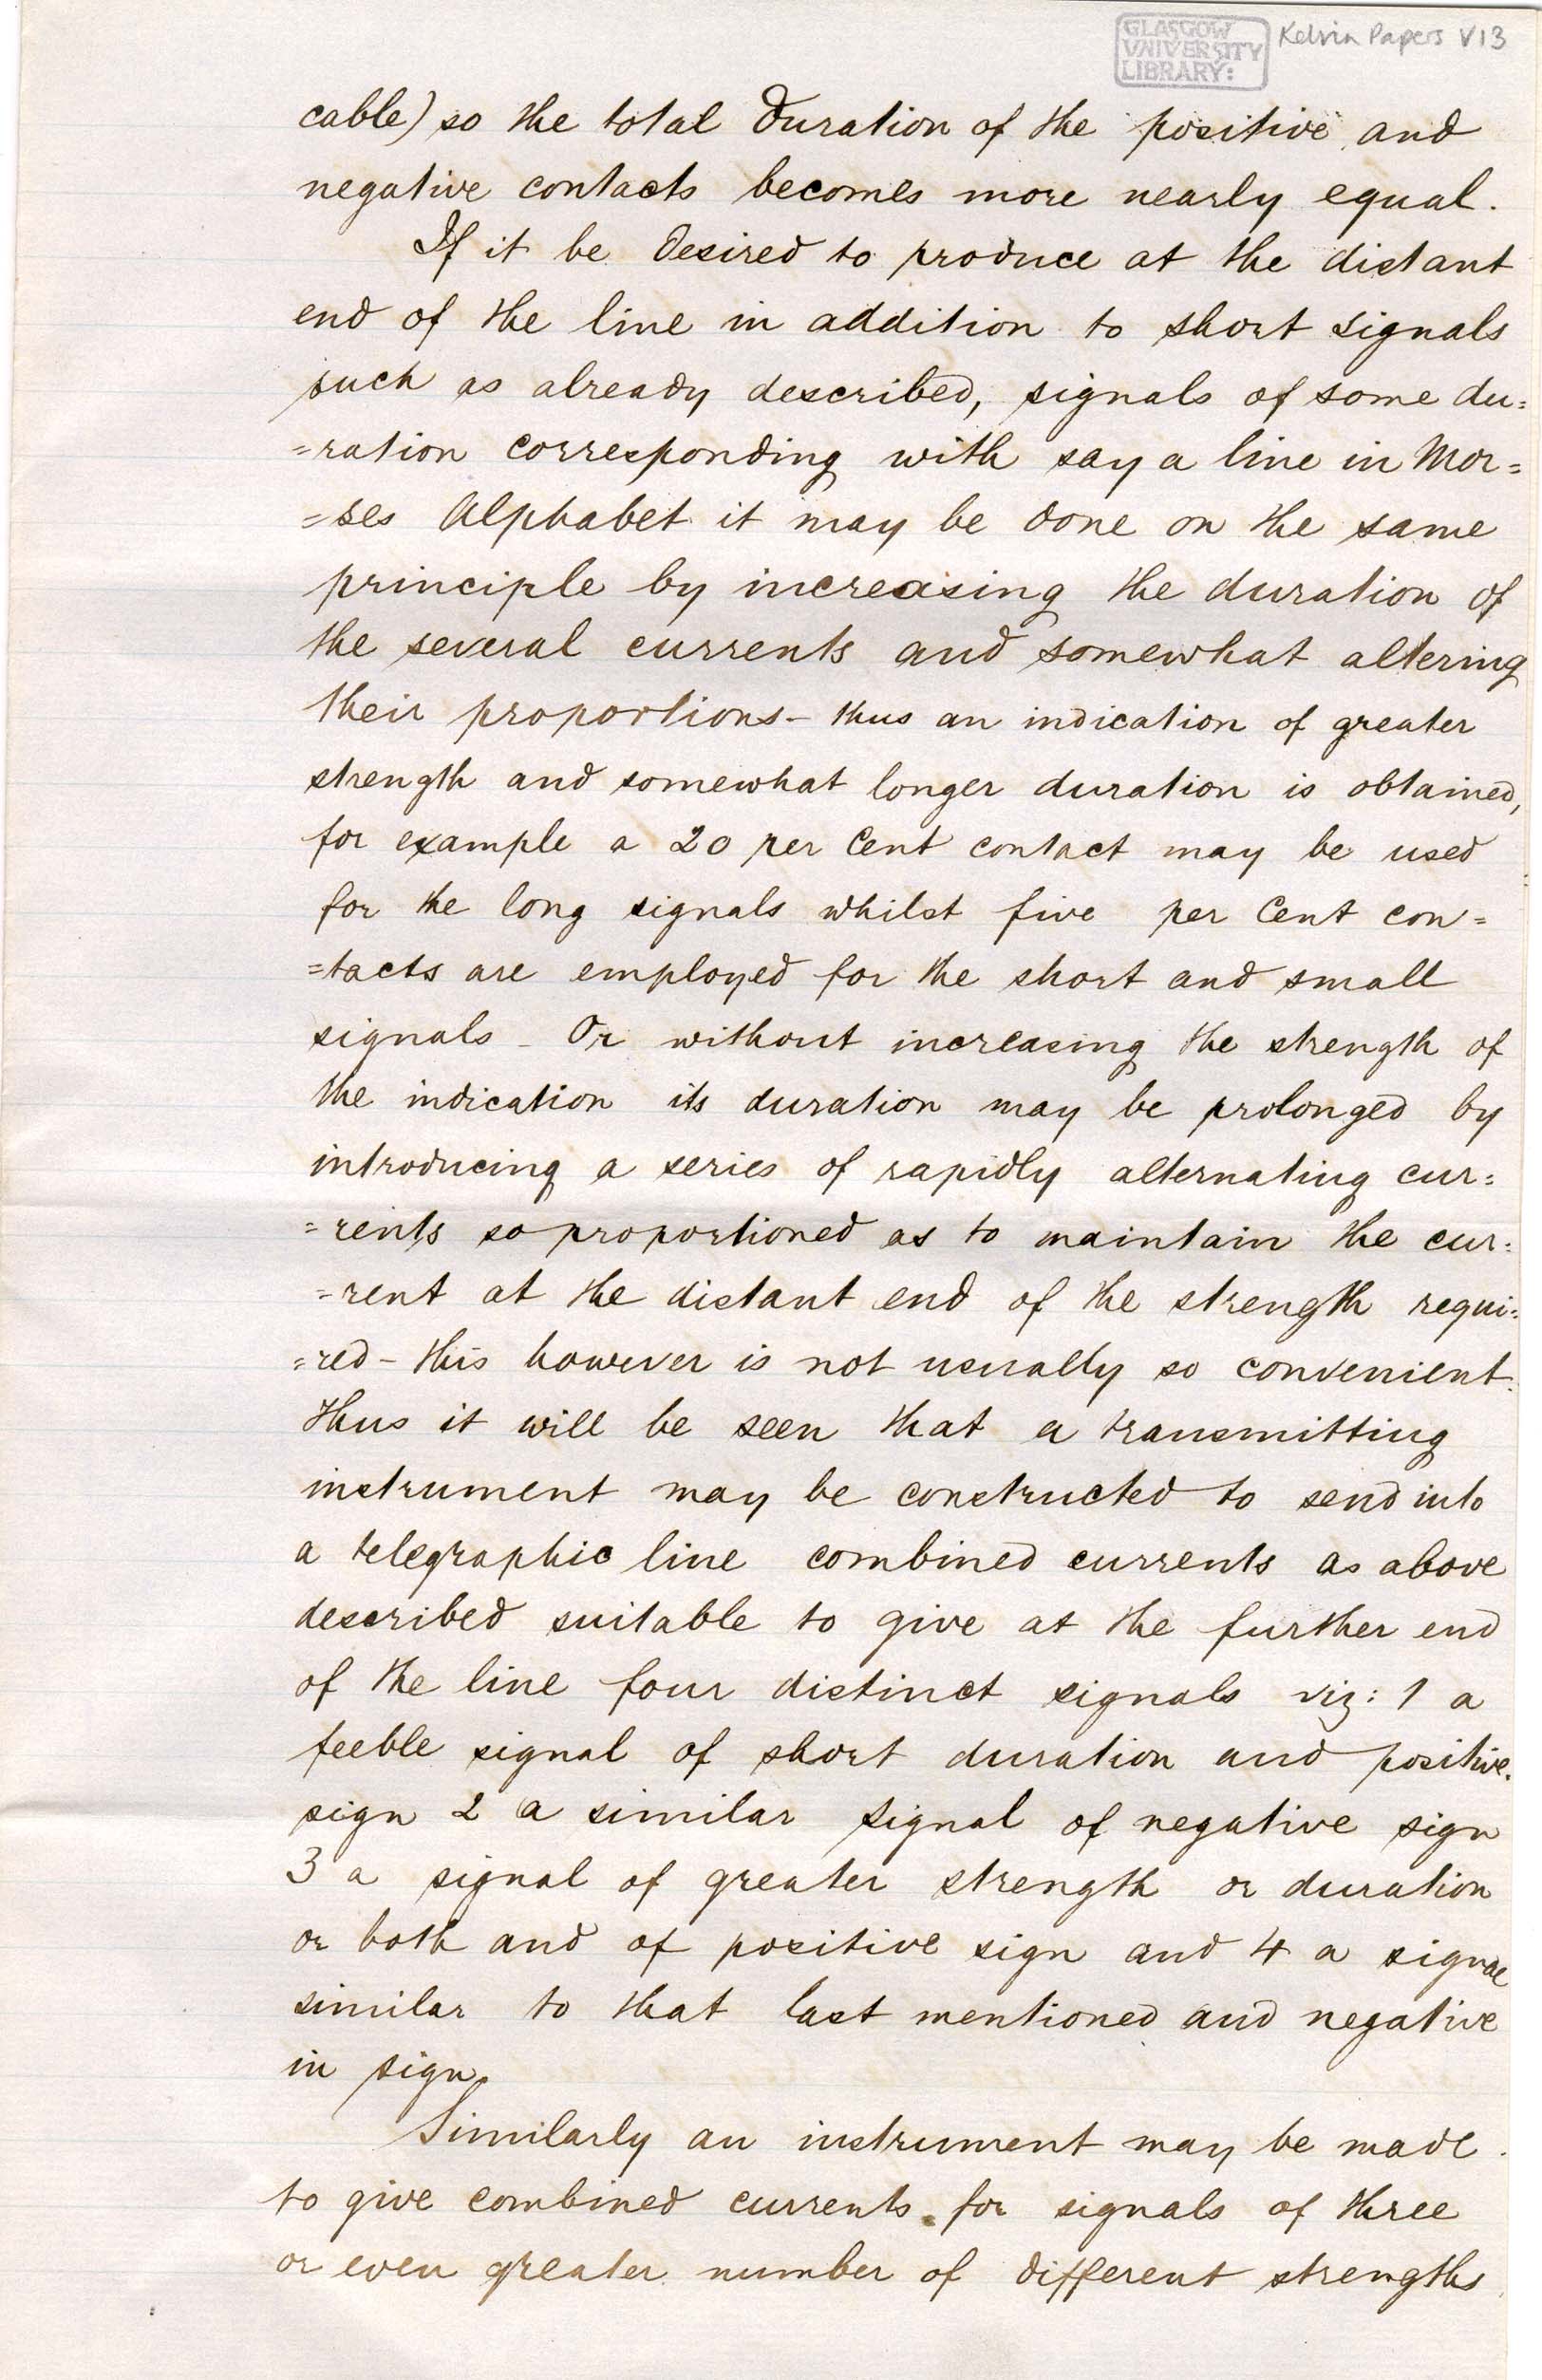 GLASGOW
UNIVERSITY
LIBRARY:
Kelvin Papers V13
cable) so the total duration of the positive and
negative contacts becomes more nearly equal.
If it be desired to produce at the distant
end of the line in addition to short signals
such as already described, signals of some du=
=ration corresponding with say a line in Mor=
=ses Alphabet it may be done on the same
principle by increasing the duration of
the several currents and somewhat altering
their proportions - thus an indication of greater
strength and somewhat longer duration is obtained,
for example a 20 per Cent contact may be used
for the long signals whilst five per Cent con=
=tacts are employed for the short and small
signals - Or without increasing the strength of
the indication its duration may be prolonged by
introducing a series of rapidly alternating cur=
=rents so proportioned as to maintain the cur=
=rent at the distant end of the strength requi=
=red - this however is not usually so convenient.
Thus it will be seen that a transmitting
instrument may be constructed to send into
a telegraphic line combined currents as above
described suitable to give at the further end
of the line four distinct signals viz: 1 a
feeble signal of short duration and positive
sign 2 a similar signal of negative sign
3 a signal of greater strength or duration
or both and of positive sign and 4 a signal
similar to that last mentioned and negative
in sign.
Similarly an instrument may be made
to give combined currents for signals of three
or even greater number of different strengths